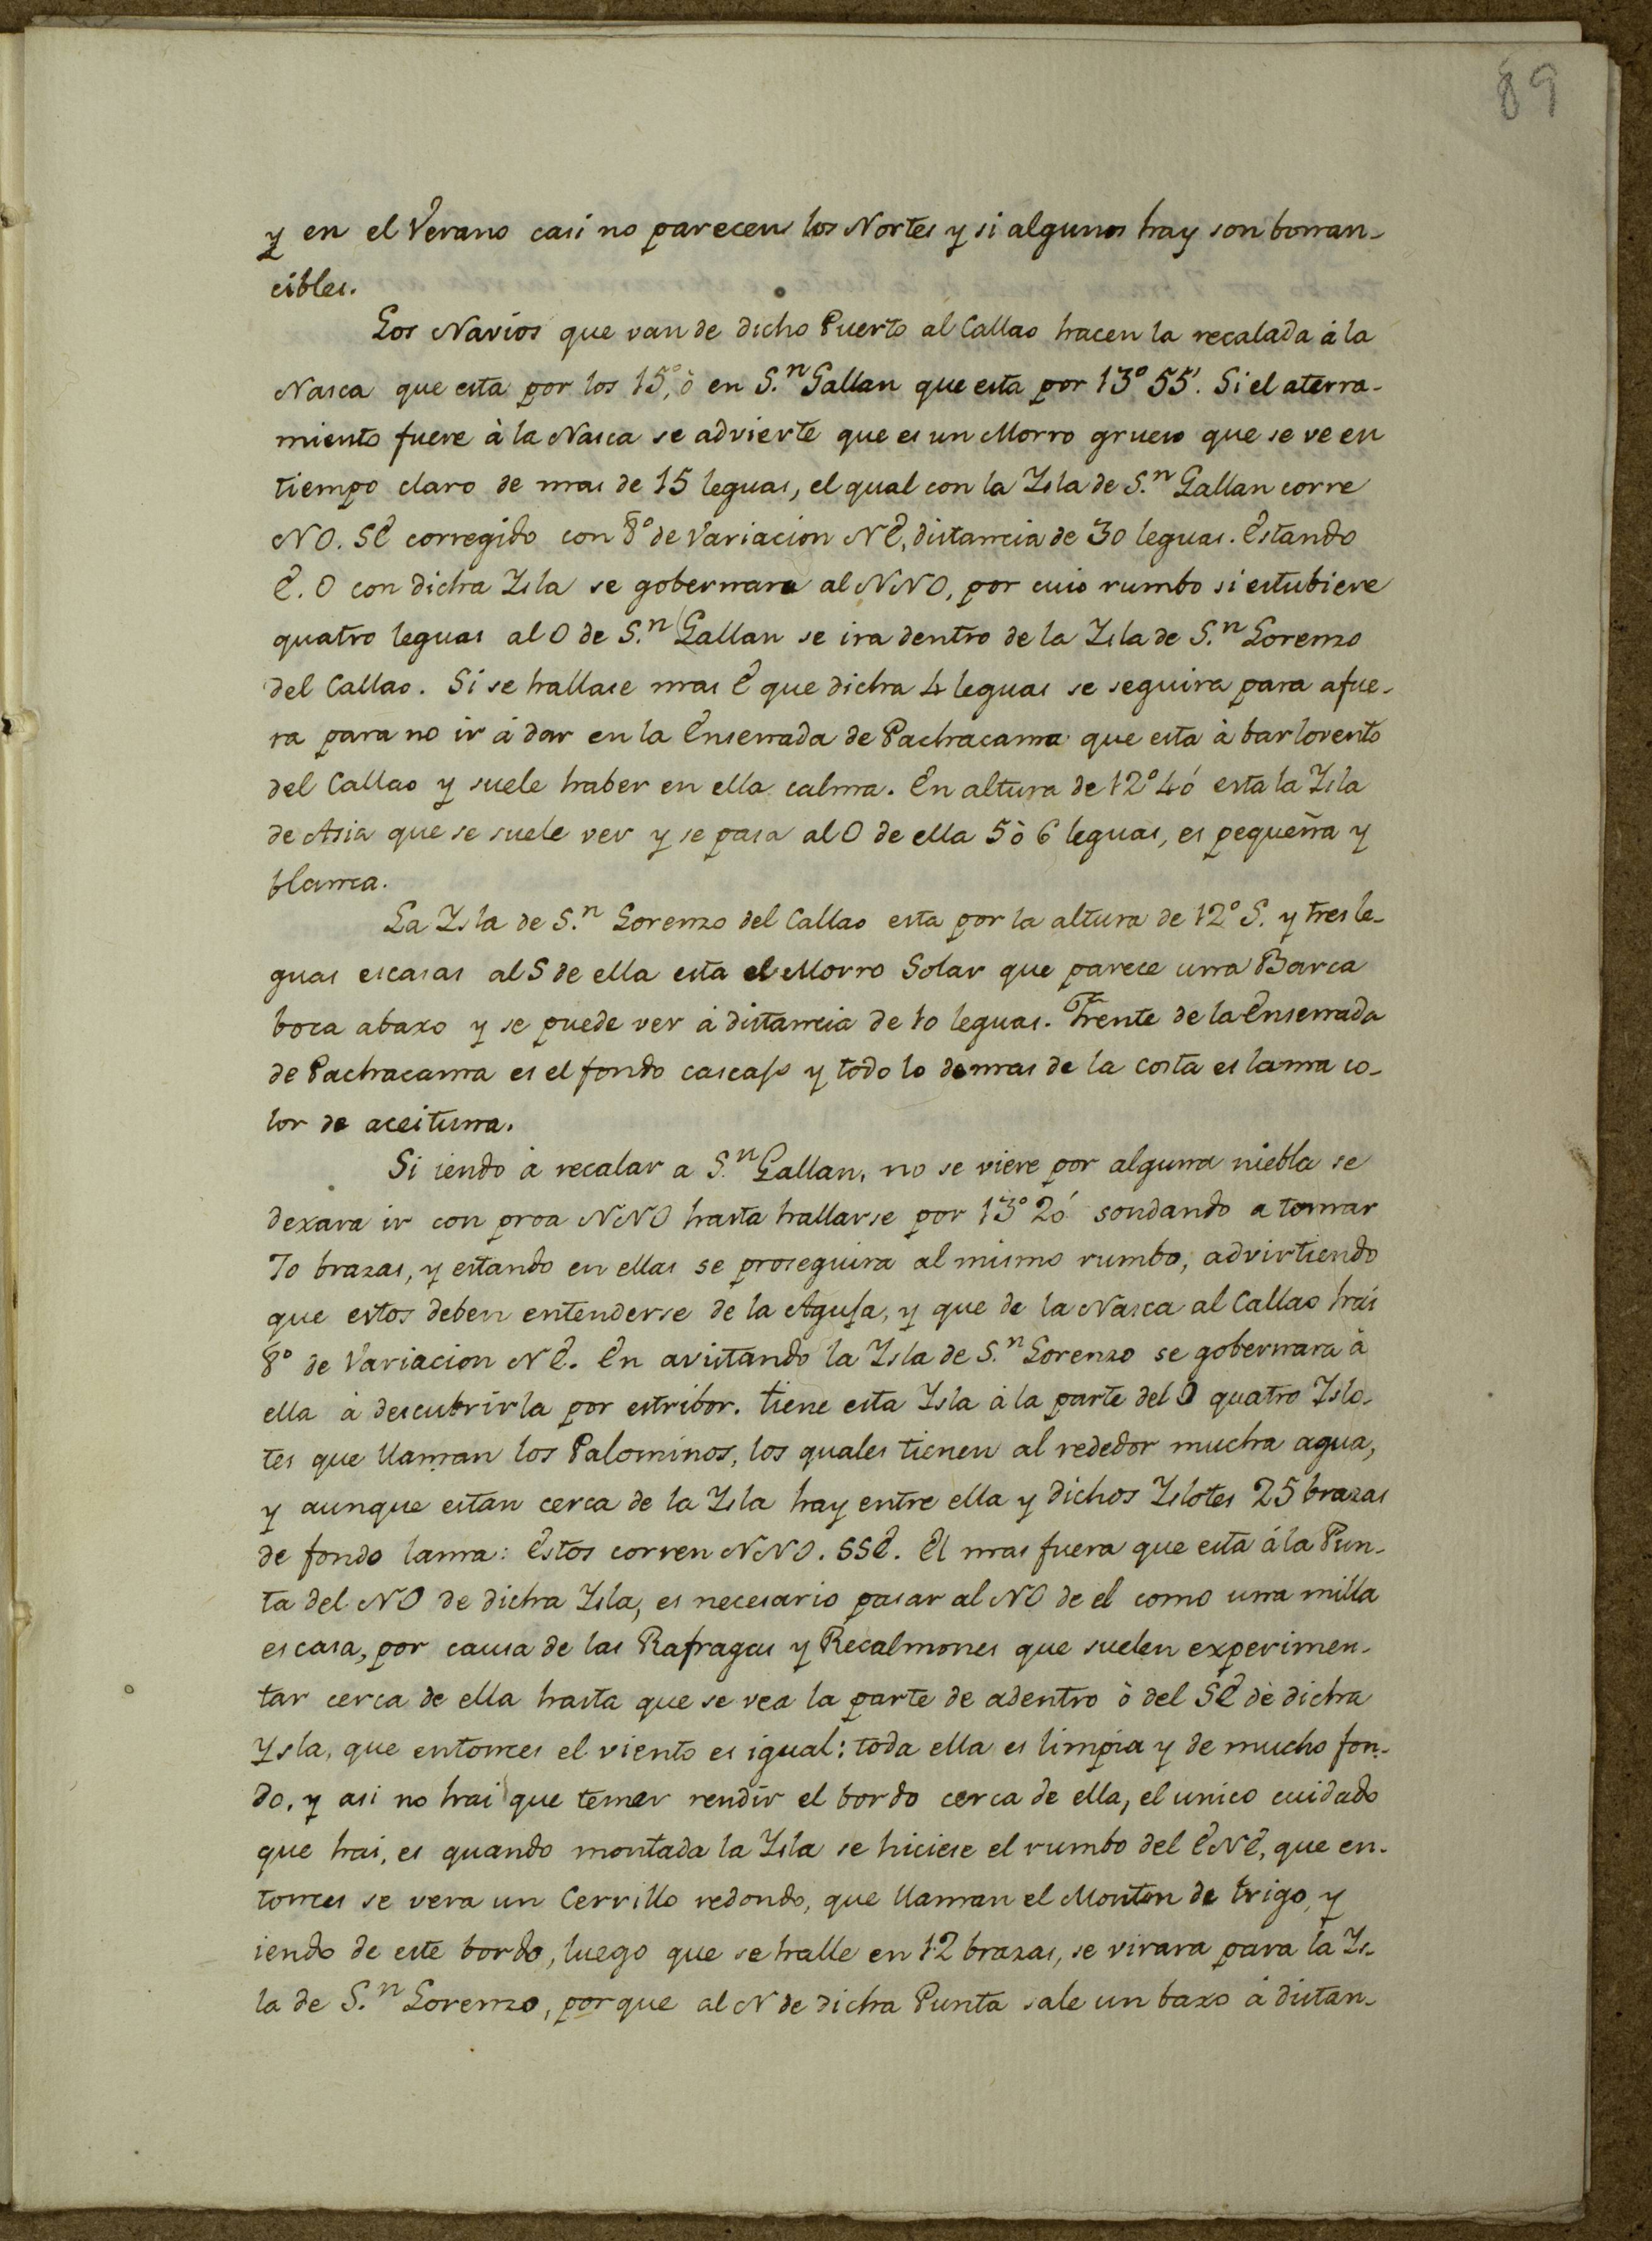 89
y en el Verano casi no parecen los Nortes y si algunos hay son borran-
cibles.
Los Navios que van de dicho Puerto al Callao hacen la recalada à la
Nasca que esta por los 15°, ò en S.n Gallan que esta por 13° 55'. Si el aterra-
miento fuere à la Nasca se advierte que es un Morro grueso que se ve en
tiempo claro de mas de 15 leguas, el qual con la Isla de S.n Gallan corre
NO. SE corregido con 8° de Variacion NE, distancia de 30 leguas. Estando
E. O con dicha Isla se gobernara al NNO, por cuio rumbo si estubiere
quatro leguas al O de S.n Gallan se ira dentro de la Isla de S.n Lorenzo
del Callao. Si se hallase mas E que dicha 4 leguas se seguira para afue-
ra para no ir à dar en la Ensenada de Pachacama que esta à barlovento
del Callao y suele haber en ella calma. En altura de 12° 40' esta la Isla
de Asia que se suele ver y se pasa al O de ella 5 ò 6 leguas, es pequeña y
blanca.
La Isla de S.n Lorenzo del Callao esta por la altura de 12° S. y tres le-
guas escasas al S de ella esta el Morro Solar que parece una Barca
boca abaxo y se puede ver à distancia de 10 leguas. Frente de la Ensenada
de Pachacama es el fondo cascajo y todo lo demas de la costa es lama co-
lor de aceituna.
Si iendo à recalar a S.n Gallan, no se viere por alguna niebla se
dexara ir con proa NNO hasta hallarse por 13° 20' sondando a tomar
70 brazas, y estando en ellas se proseguira al mismo rumbo, advirtiendo
que estos deben entenderse de la Aguja, y que de la Nasca al Callao hai
8° de Variacion NE. En avistando la Isla de S.n Lorenzo se gobernara à
ella à descubrirla por estribor. tiene esta Isla à la parte del O quatro Islo-
tes que llaman los Palominos, los quales tienen al rededor mucha agua,
y aunque estan cerca de la Isla hay entre ella y dichos Islotes 25 brazas
de fondo lama: Estos corren NNO. SSE. El mas fuera que esta à la Pun-
ta del NO de dicha Isla, es necesario pasar al NO de el como una milla
escasa, por causa de las Rafragas y Recalmones que suelen experimen-
tar cerca de ella hasta que se vea la parte de adentro ò del SE de dicha
Ysla, que entonces el viento es igual: toda ella es limpia y de mucho fon-
do, y asi no hai que temer rendir el bordo cerca de ella, el unico cuidado
que hai, es quando montada la Isla se hiciese el rumbo del ENE, que en-
tonces se vera un Cerrillo redondo, que llaman el Monton de trigo, y
iendo de este bordo, luego que se halle en 12 brazas, se virara para la Is-
la de S.n Lorenzo, porque al N de dicha Punta sale un baxo à distan-